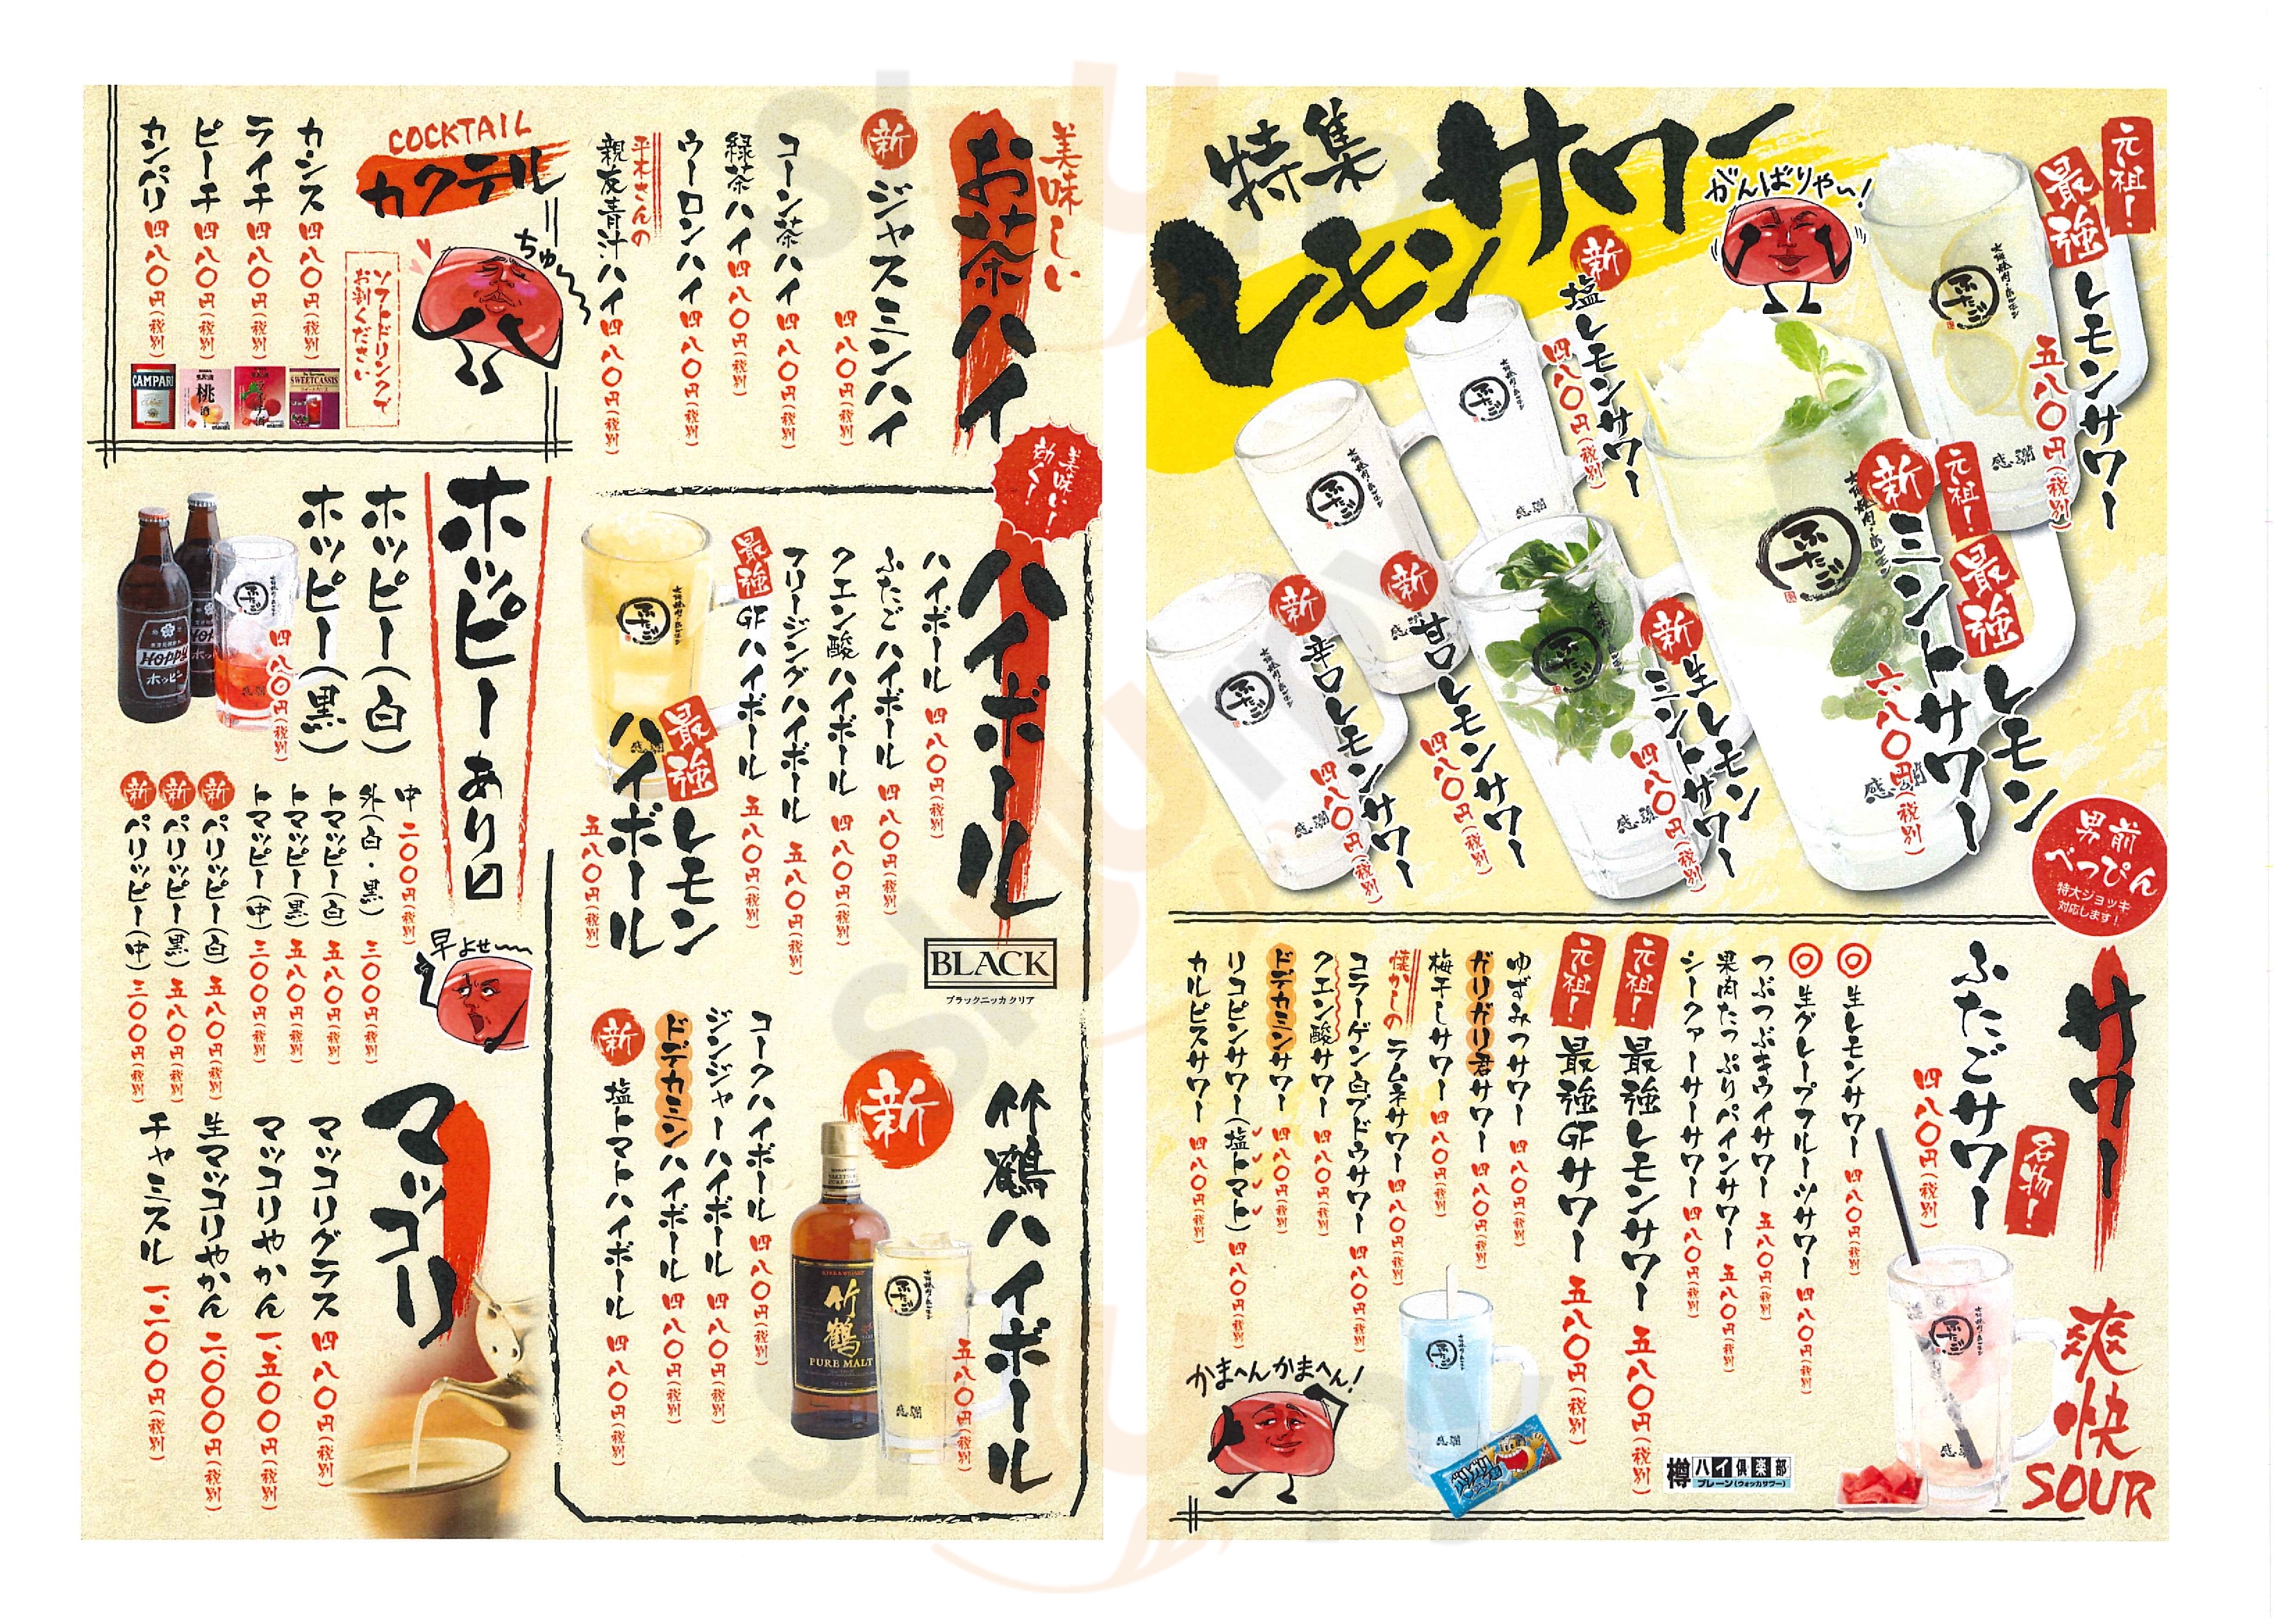 特集
レモンサワー
がんばりやぃ!
元祖!
最強
レモンサワー
五八〇円(税別)
新
塩レモンサワー
四八〇円(税別)
元祖!
最強
レモン
新
ミントサワー
六八〇円(税別)
新
生レモン
ミントサワー
四八〇円(税別)
新
甘口レモンサワー
四八〇円(税別)
新
辛口レモンサワー
四八〇円(税別)
大阪焼肉・ホルモン
ふたご
感謝
男前
べっぴん
特大ジョッキ
対応します!
サワー
爽快
SOUR
名物!
ふたごサワー
四八〇円(税別)
◎生レモンサワー 四八〇円(税別)
◎生グレープフルーツサワー 四八〇円(税別)
つぶつぶキウイサワー 五八〇円(税別)
果肉たっぷりパインサワー 五八〇円(税別)
シークァーサーサワー 四八〇円(税別)
元祖! 最強レモンサワー 五八〇円(税別)
元祖! 最強GFサワー 五八〇円(税別)
ゆずみつサワー 四八〇円(税別)
ガリガリ君サワー 四八〇円(税別)
梅干しサワー 四八〇円(税別)
懐かしの ラムネサワー 四八〇円(税別)
コラーゲン白ブドウサワー 四八〇円(税別)
クエン酸サワー 四八〇円(税別)
ドデカミンサワー 四八〇円(税別)
リコピンサワー(塩トマト) 四八〇円(税別)
カルピスサワー 四八〇円(税別)
かまへんかまへん!
樽ハイ倶楽部
プレーン(ウォッカサワー)
美味しい
お茶ハイ
新 ジャスミンハイ
四八〇円(税別)
コーン茶ハイ 四八〇円(税別)
緑茶ハイ 四八〇円(税別)
ウーロンハイ 四八〇円(税別)
平木さんの
親友青汁ハイ 四八〇円(税別)
COCKTAIL
カクテル
ちゅ〜
ソフトドリンクで
お割りください
カシス 四八〇円(税別)
ライチ 四八〇円(税別)
ピーチ 四八〇円(税別)
カンパリ 四八〇円(税別)
SWEETCASSIS
桃
CAMPARI
美味い!
効く!
ハイボール
BLACK
ブラックニッカ クリア
ハイボール 四八〇円(税別)
ふたごハイボール 四八〇円(税別)
クエン酸ハイボール 四八〇円(税別)
フリージングハイボール 五八〇円(税別)
最強 GFハイボール 五八〇円(税別)
最強 レモン
ハイボール
五八〇円(税別)
竹鶴ハイボール
五八〇円(税別)
新
竹鶴
PURE MALT
コークハイボール 四八〇円(税別)
ジンジャーハイボール 四八〇円(税別)
ドデカミンハイボール 四八〇円(税別)
新 塩トマトハイボール 四八〇円(税別)
ホッピーあり〼
ホッピー(白)
ホッピー(黒)
四八〇円(税別)
Hoppy
ホッピー
中 二〇〇円(税別)
外(白・黒) 三〇〇円(税別)
トマッピー(白) 五八〇円(税別)
トマッピー(黒) 五八〇円(税別)
トマッピー(中) 三〇〇円(税別)
新 パリッピー(白) 五八〇円(税別)
新 パリッピー(黒) 五八〇円(税別)
新 パリッピー(中) 三〇〇円(税別)
早よせ〜
マッコリ
マッコリグラス 四八〇円(税別)
マッコリやかん 一、五〇〇円(税別)
生マッコリやかん 二、〇〇〇円(税別)
チャミスル 一、二〇〇円(税別)